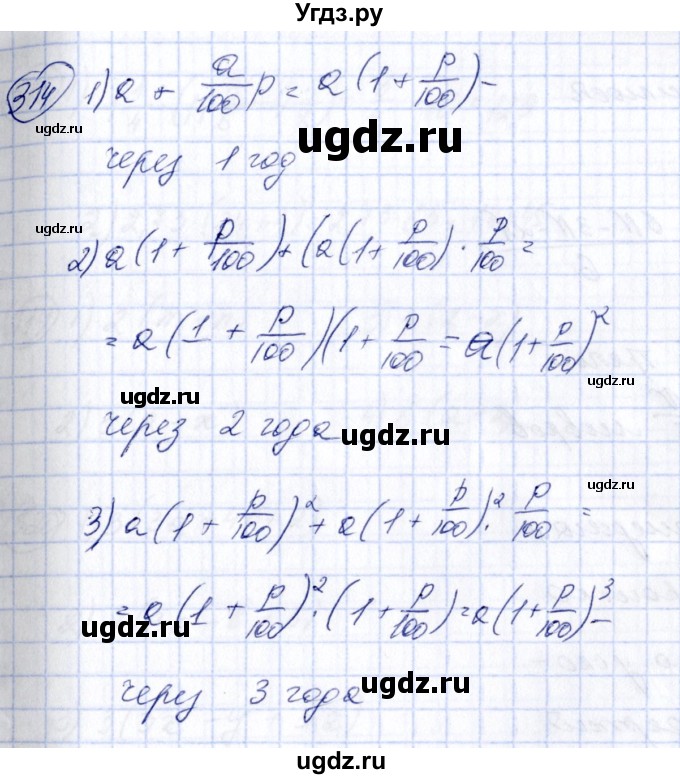 Угдз.ру
314 1) a + a/100 p = a(1 + p/100) -
ugdz.ru ugdz.ru
через 1 год
ugdz.ru
2) a(1 + p/100) + (a(1 + p/100) · p/100 =
= a(1 + p/100)(1 + p/100 = a(1 + p/100)²
ugdz.ru
через 2 года
ugdz.ru ugdz.ru
3) a(1 + p/100)² + a(1 + p/100)² · p/100 =
ugdz.ru
= a(1 + p/100)² · (1 + p/100) = a(1 + p/100)³ -
ugdz.ru
через 3 года
ugdz.ru
©Угдз.ру